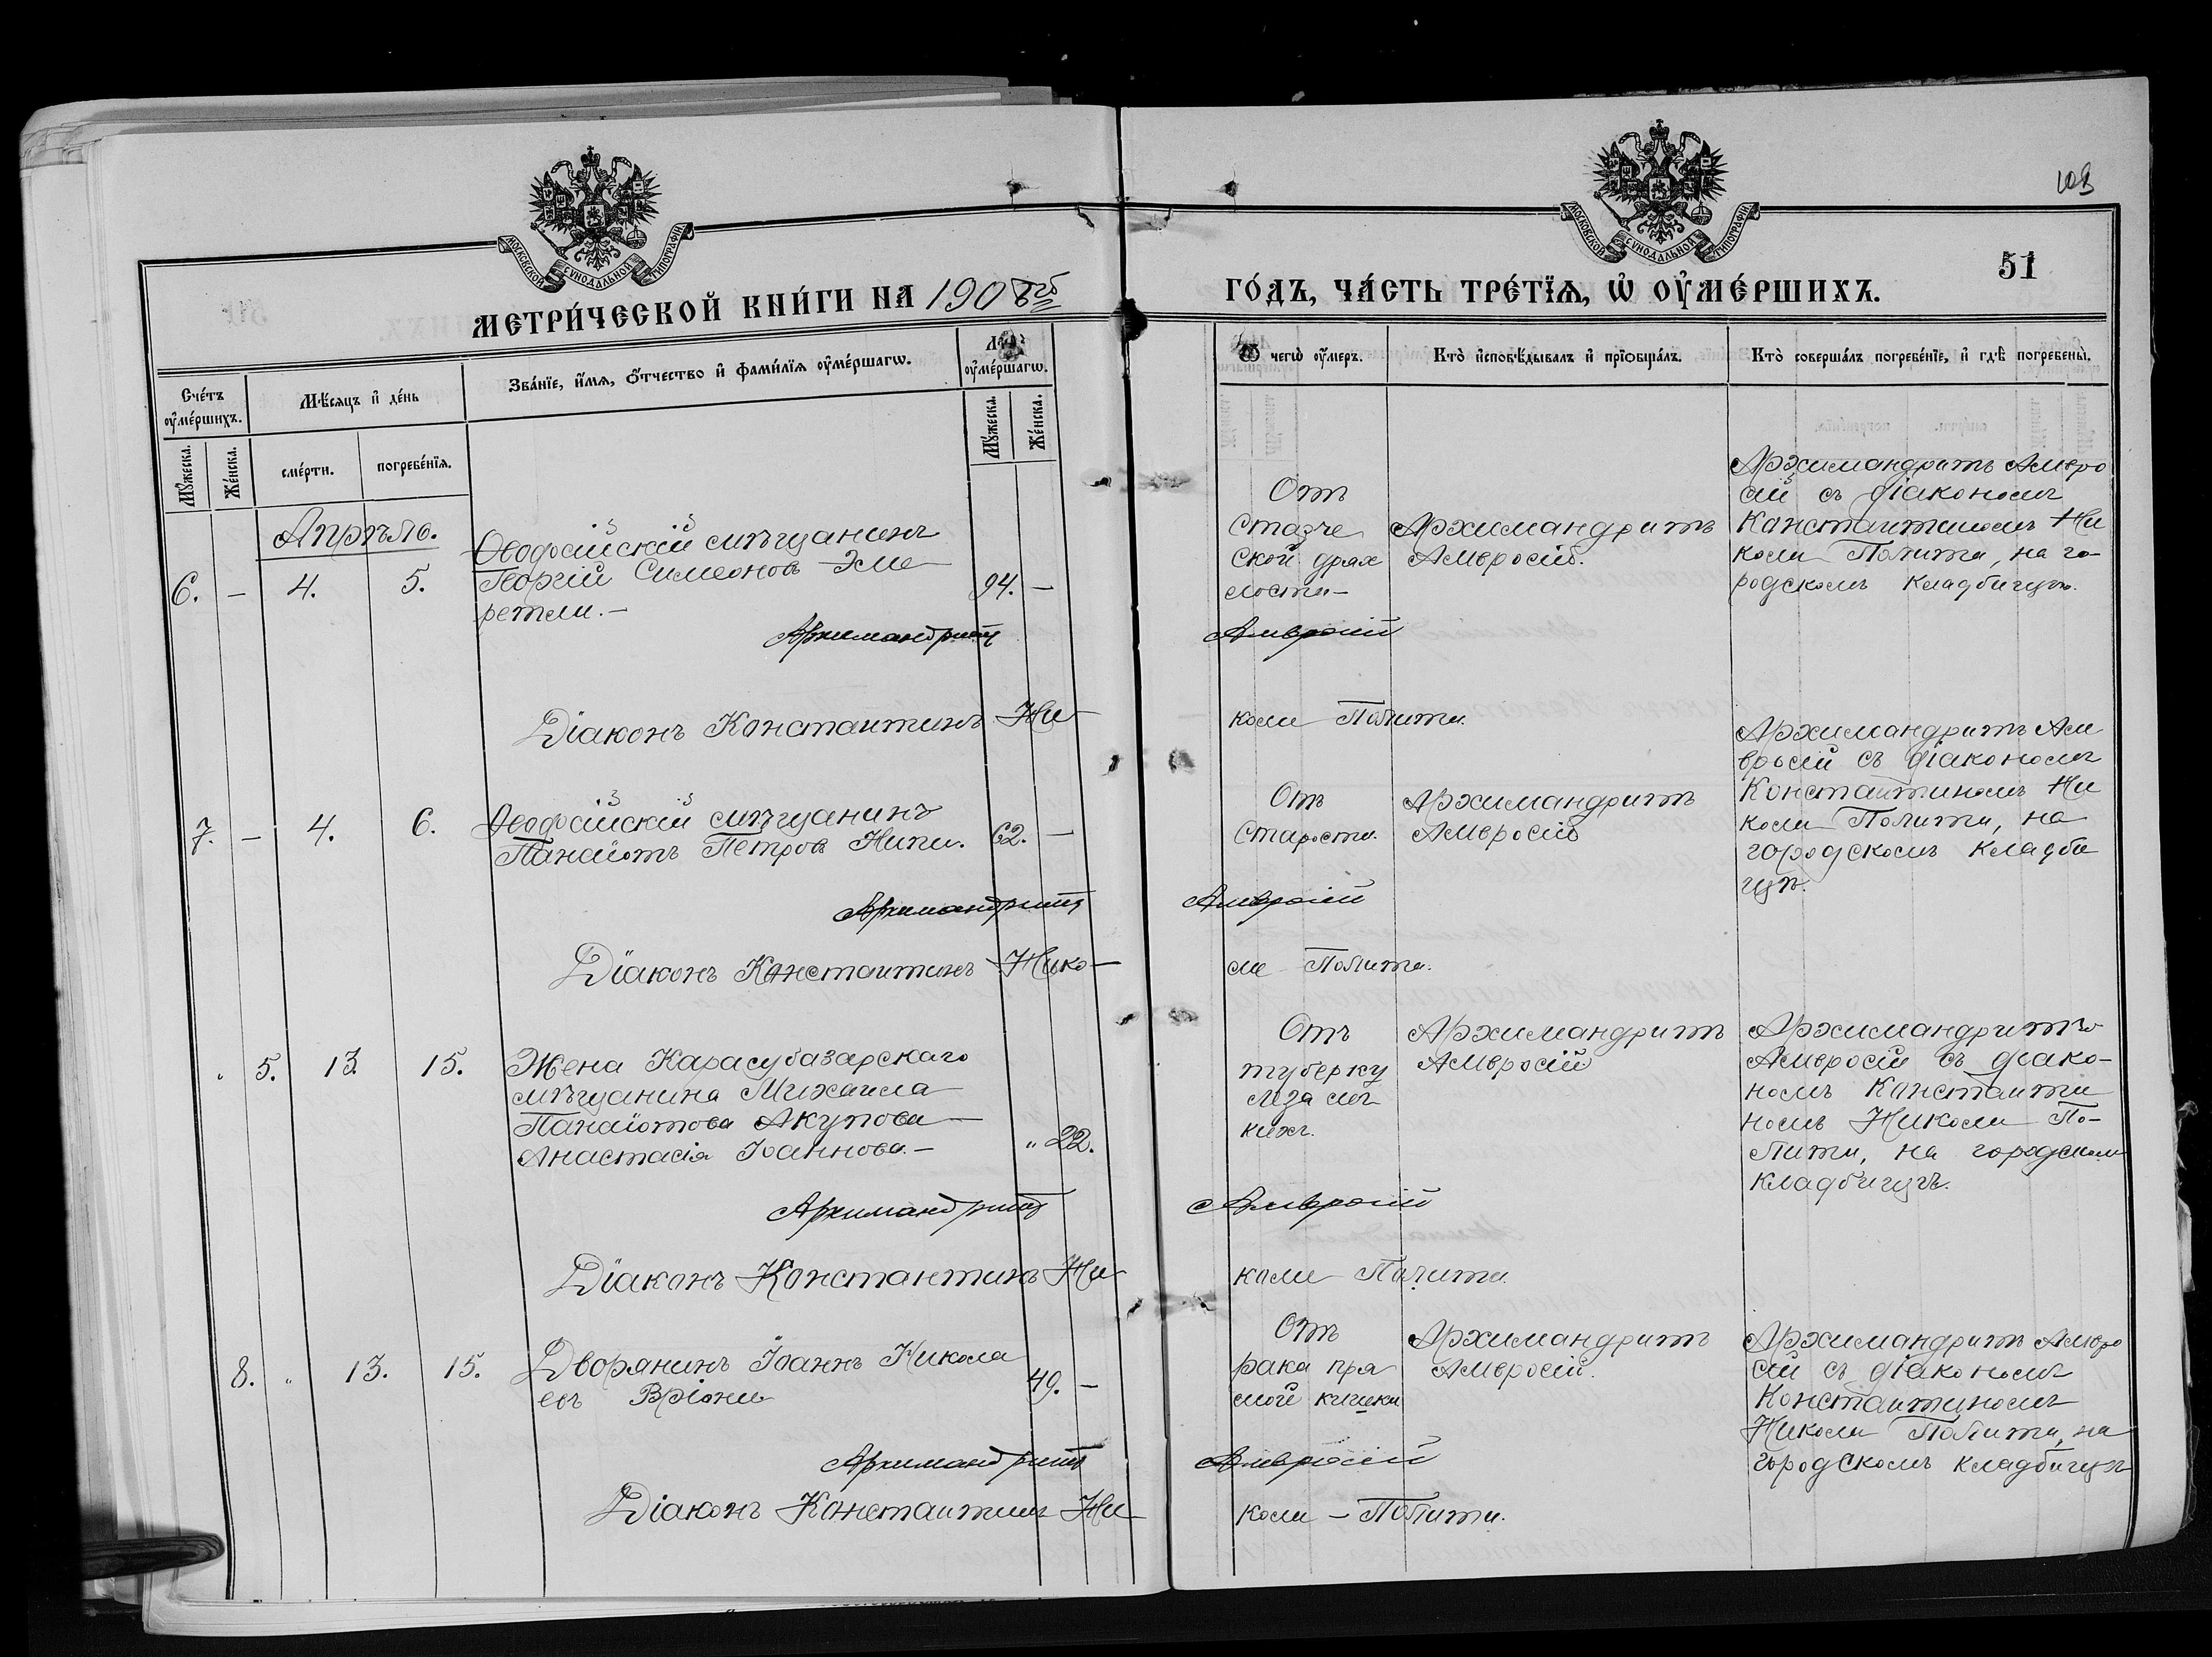 103
МОСКОВСКОЙ СУНОДАЛЬНОЙ ТИПОГРАФІИ
МОСКОВСКОЙ СУНОДАЛЬНОЙ ТИПОГРАФІИ
51
МЕТРИ́ЧЕСКОЙ КНИ́ГИ НА 1908й
ГО́ДЪ, ЧА́СТЬ ТРЕ́ТЇѦ, Ѡ ОУ҆МЕ́РШИХЪ.
Сче́тъ оу҆ме́ршихъ.
Мѣ́сяцъ и҆ де́нь
Зва́нїе, и҆́мѧ, ѻ҆́тчество и҆ фами́лїѧ оу҆ме́ршагѡ.
оу҆ме́ршагѡ.
Ѿ чегѡ̀ оу҆́меръ.
Кто̀ и҆сповѣ́дывалъ и҆ прїѡбща́лъ.
Кто̀ соверша́лъ погребе́нїе, и҆ гдѣ̀ погребены̀.
Му́жеска.
Же́нска.
сме́рти.
погребе́нїѧ.
Му́жеска.
Же́нска.
Апрѣль.
6. — 4. 5.
Ѳеодосійскій мѣщанинъ
Георгій Симеоновъ Эме
ретли. —
94. —
Отъ
старче
ской дрях
лости —
Архимандритъ
Амвросій.
Архимандритъ Амвро
сій съ діакономъ
Константиномъ Ни
коли Политы, на го-
родскомъ кладбищѣ.
Архимандритъ Амвросій
Діаконъ Константинъ Ни
коли Полити.
7. — 4. 6.
Ѳеодосійскій мѣщанинъ
Панаіотъ Петровъ Нипи.
62. —
Отъ
старости.
Архимандритъ
Амвросій
Архимандритъ Ам
вросій съ діакономъ
Константиномъ Ни
коли Полити, на
городскомъ кладби
щѣ.
Архимандритъ Амвросій
Діаконъ Константинъ Нико—
ли Полити.
" 5. 13. 15.
Жена Карасубазарскаго
мѣщанина Михаила
Панаіотова Акупова
Анастасія Іоаннова. —
" 22.
Отъ
туберку
леза лег
кихъ.
Архимандритъ
Амвросій
Архимандритъ
Амвросій съ діако-
номъ Константи
номъ Николи По-
лити, на городскомъ
кладбищѣ.
Архимандритъ Амвросій
Діаконъ Константинъ Ни
коли Полити.
8. " 13. 15.
Дворянинъ Іоаннъ Никола
евъ Вріони
49. —
Отъ
рака пря
мой кишки
Архимандритъ
Амвросій.
Архимандритъ Амвро
сій съ діакономъ
Константиномъ
Николи Полити, на
городскомъ кладбищѣ
Архимандритъ Амвросій
Діаконъ Константинъ Ни
коли — Полити.